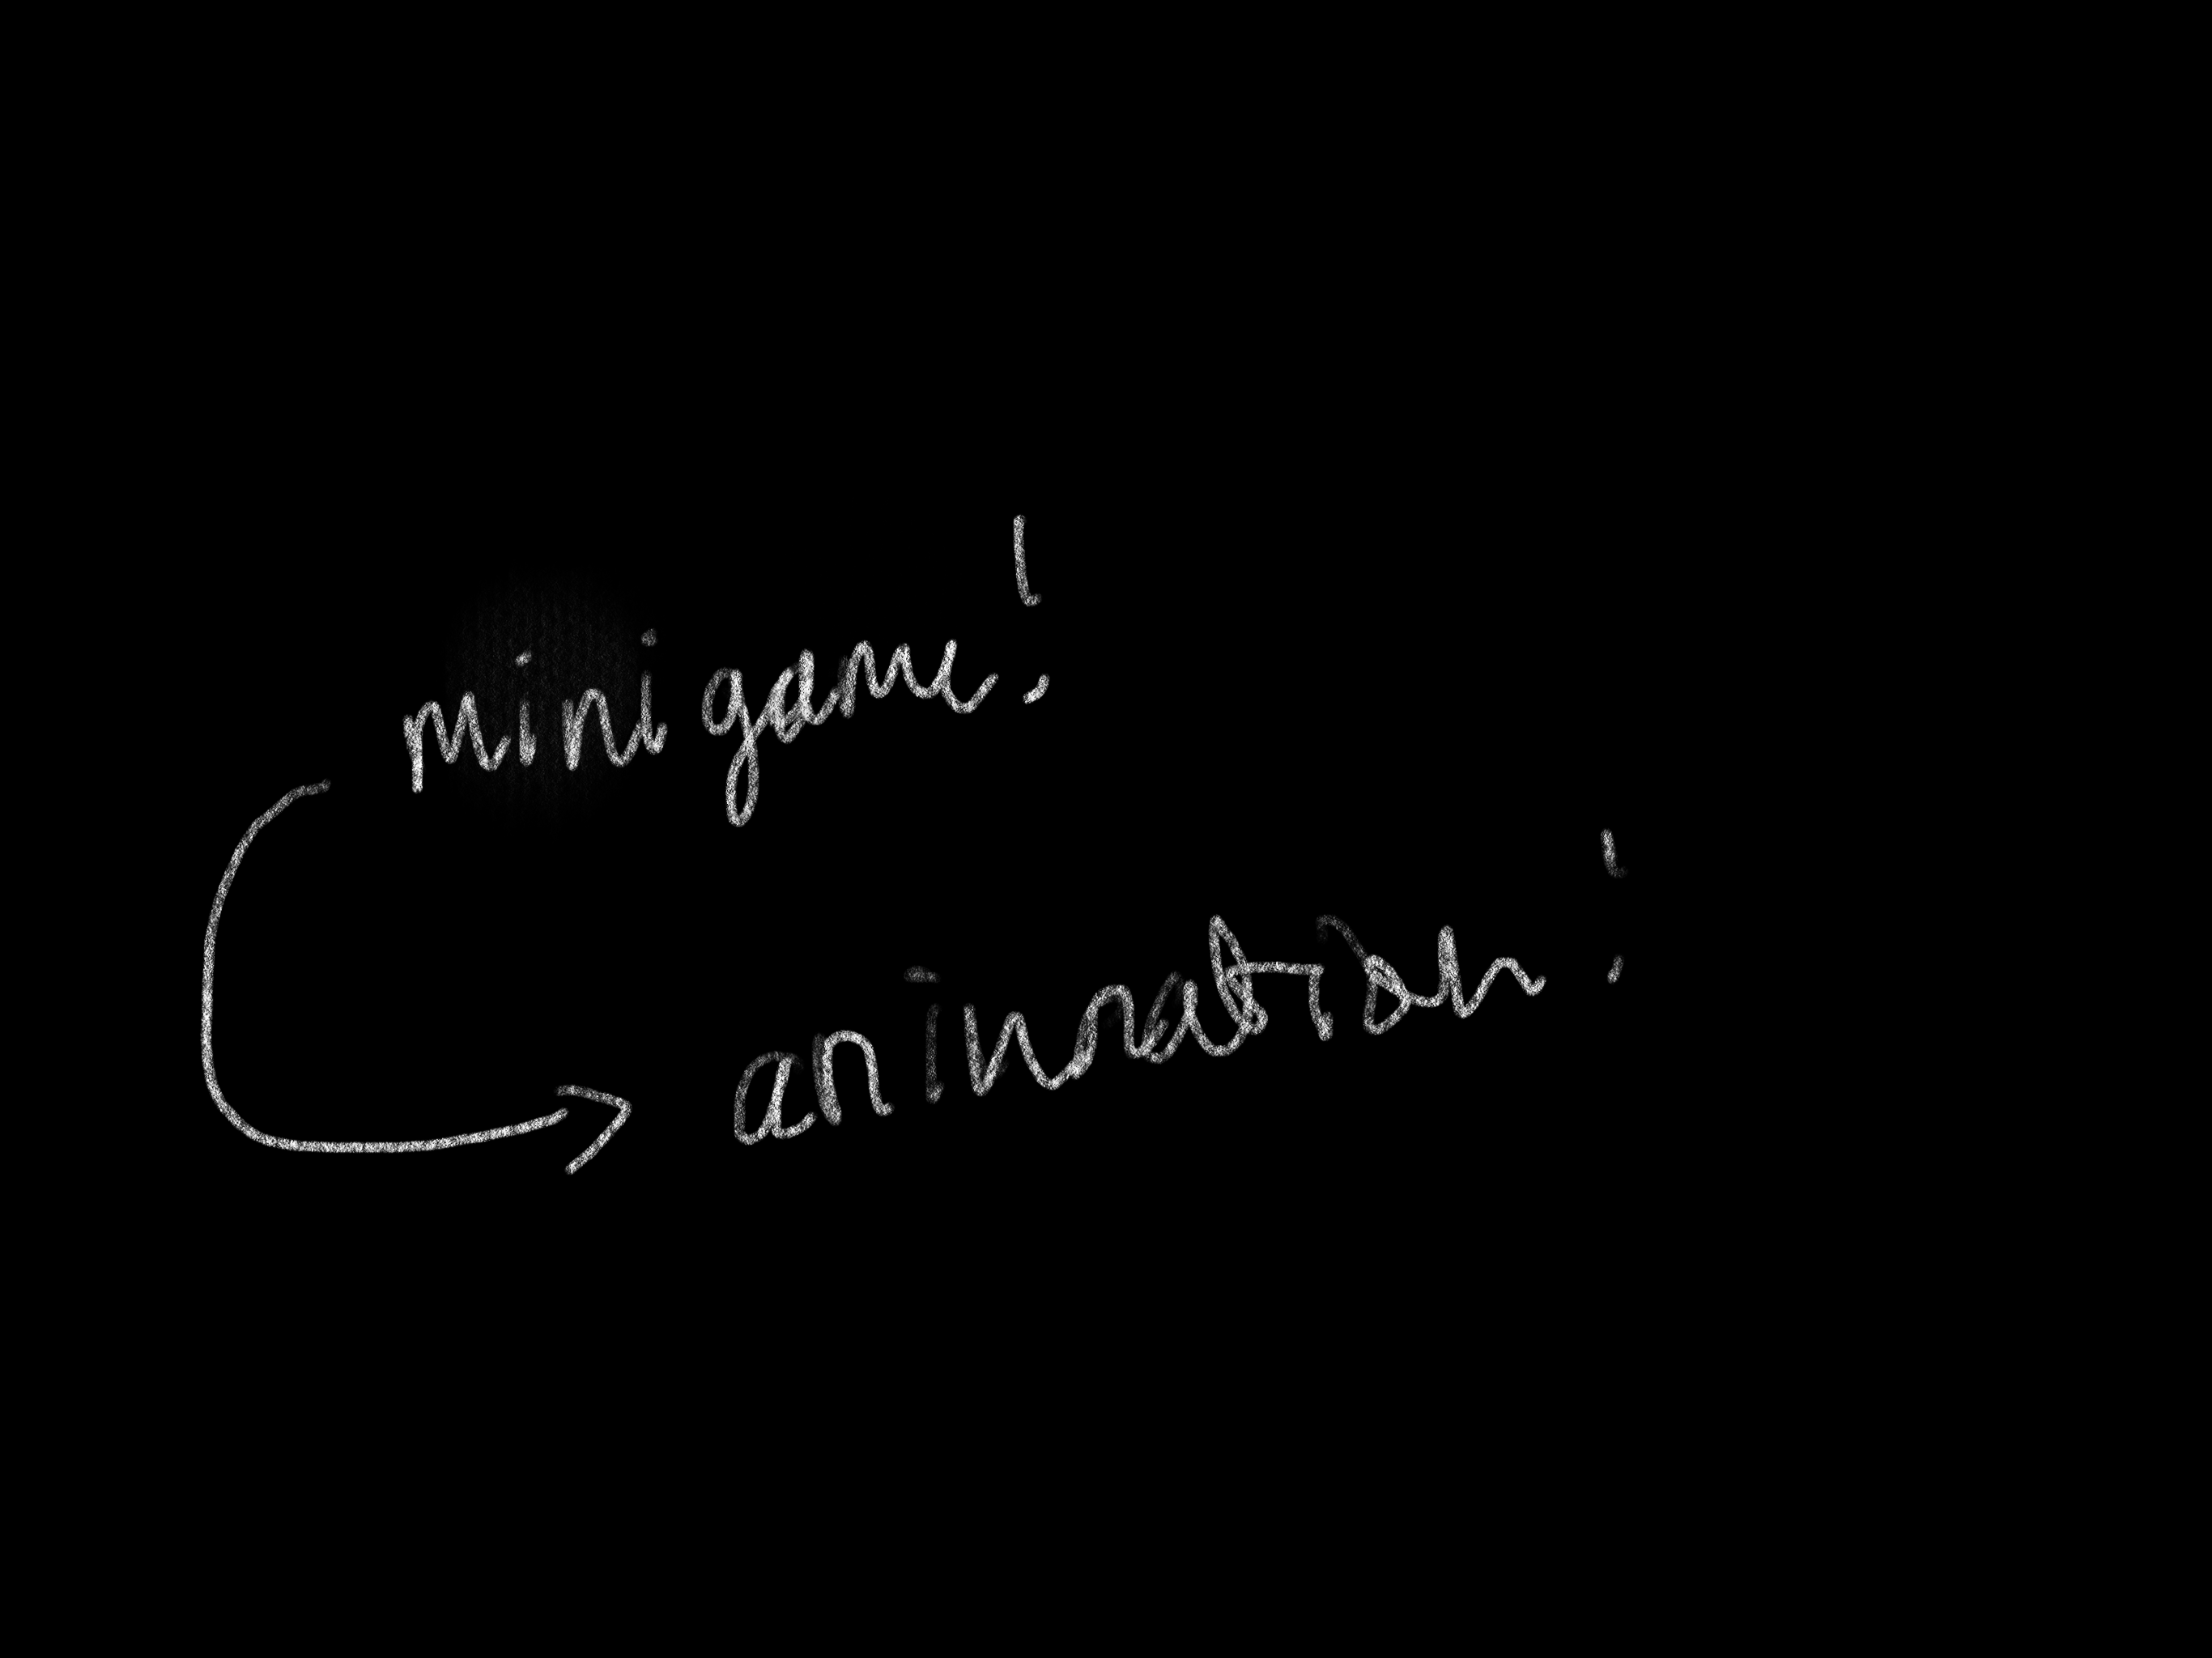 minigame!
animation!